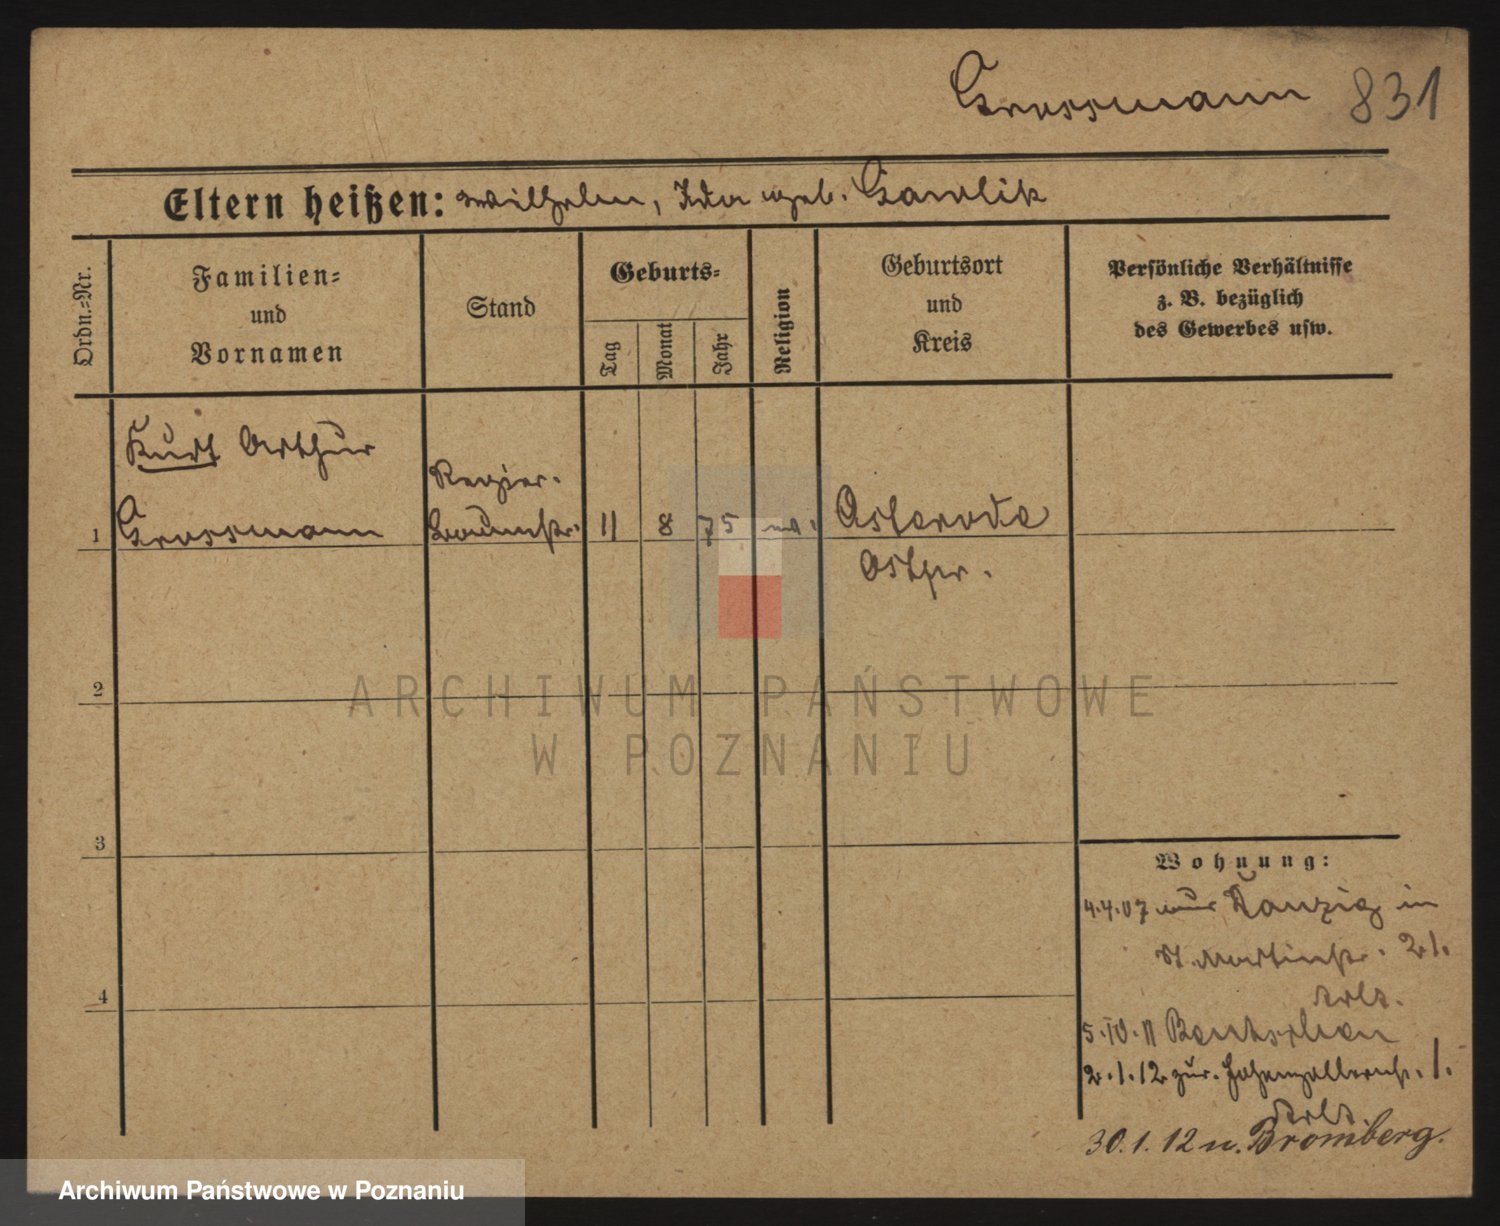 Grossmann 831
Eltern heißen: Wilhelm, Ida geb. Gawlik
Ordn.-Nr.
Familien-
und
Vornamen
Stand
Geburts-
Tag
Monat
Jahr
Religion
Geburtsort
und
Kreis
Persönliche Verhältnisse
z. B. bezüglich
des Gewerbes usw.
Kurt Arthur
Grossmann
Regier.
Baumstr.
1
11
8
75
ev.
Osterode
Ostpr.
2
3
4
Wohnung:
4.4.07 aus Danzig in
St. Martinstr. 21.
5.IV.11 Bentschen
2.1.12 zur. Hohenzollernstr. 1.
30.1.12 n. Bromberg.
ARCHIWUM PAŃSTWOWE
W POZNANIU
Archiwum Państwowe w Poznaniu